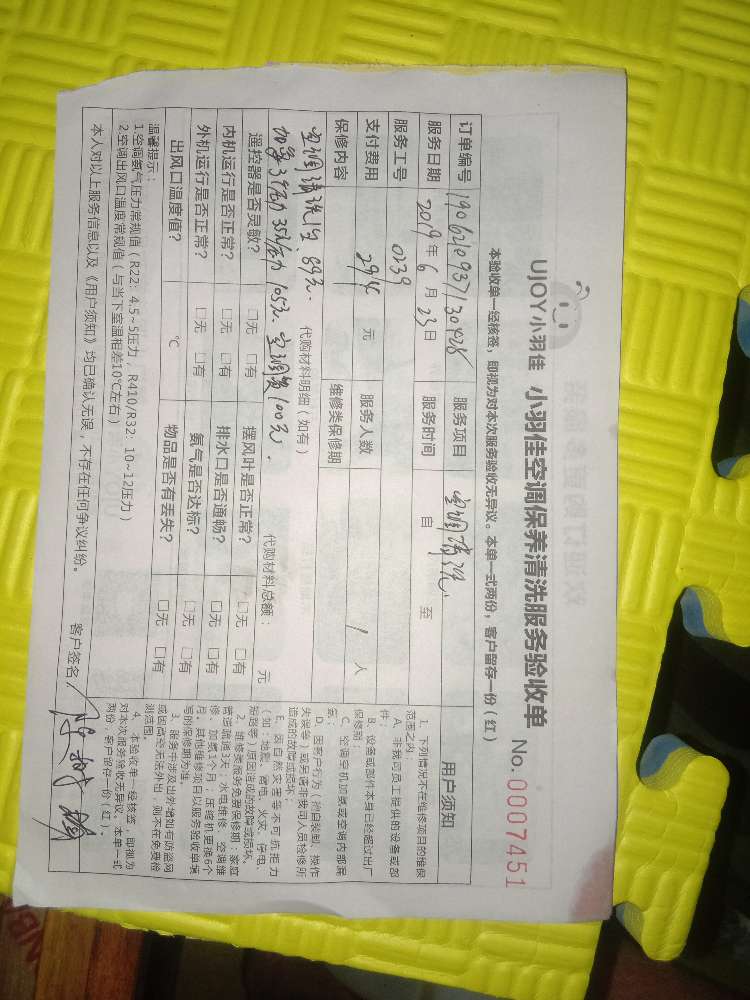 UJOY小羽佳 小羽佳空调保养清洗服务验收单
No. 0007451
本验收单一经核签，即视为对本次服务验收无异议。本单一式两份，客户留存一份（红）
订单编号 服务项目 空调清洗
服务日期 2019年6月23日 服务时间 自 至
服务工号 0239
支付费用 294 元 服务人数 1 人
保修内容 维修类保修期
空调清洗1台 89元.
代购材料明细（如有） 代购材料总额： 元
加氟3个压力 35元/压力 105元. 空调 100元.
遥控器是否灵敏? □无 □有 摆风叶是否正常? □无 □有
内机运行是否正常? □无 □有 排水口是否通畅? □无 □有
外机运行是否正常? □无 □有 氨气是否达标? □无 □有
出风口温度值? ℃ 物品是否有丢失? □无 □有
温馨提示：
1.空调氨气压力常规值（R22：4.5~5压力，R410/R32：10~12压力）
2.空调出风口温度常规值（与当下室温相差10℃左右）
本人对以上服务信息以及《用户须知》均已确认无误，不存在任何争议纠纷。 客户签名：
用户须知
1. 下列情况不在维修项目的维保
范围之内：
A. 非我司员工提供的设备或部
件；
B. 设备或部件本身已经超过出厂
保修期；
C. 空调穿机加氨或空调内部漏
氨；
D. 因客户行为（擅自装卸、操作
失误等）或另请非我司人员检修所
造成的故障或损坏；
E. 因自然灾害等不可抗拒力
（如：地震、雷电、火灾、停电、
短路等）原因造成的故障或损坏。
2. 维修类服务免费保修期：家庭
管道疏通3天、水电维修、空调维
修、加氨1个月；压缩机更换6个
月。其他维修项目以服务验收单填
写的保修期为准。
3. 服务中涉及出外墙如有防盗网
或因高空无法外出，则不在免费检
测范围。
4. 本验收单一经核签，即视为
对本次服务验收无异议。本单一式
两份，客户留存一份（红）。